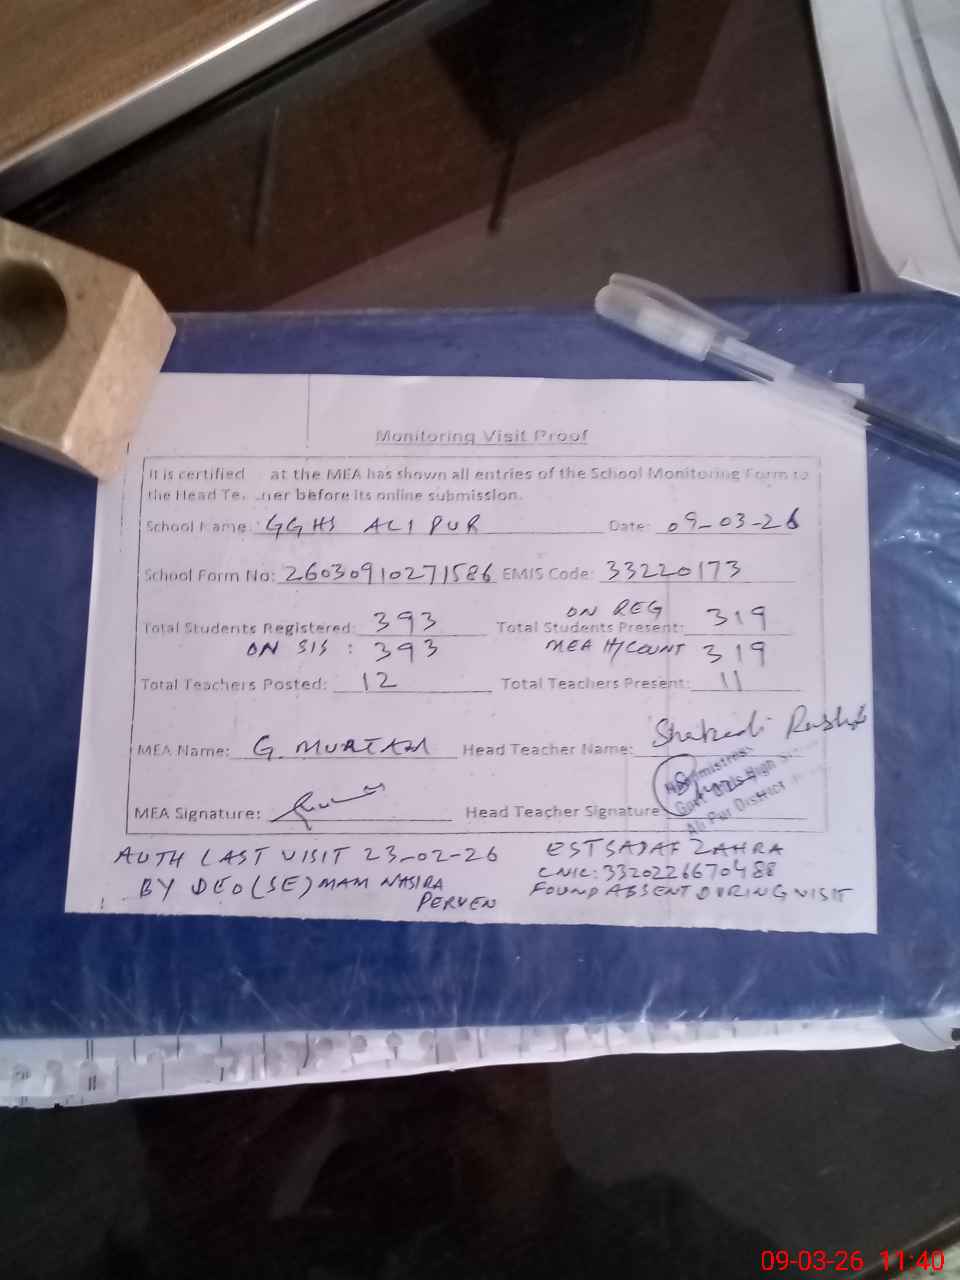 Monitoring Visit Proof
It is certified at the MEA has shown all entries of the School Monitoring Form to
the Head Te. .her before its online submission.
School Name: GGHS ALIPUR Date: 09-03-26
School Form No: 26030910271586 EMIS Code: 33220173
ON REG
Total Students Registered: 393 Total Students Present: 319
ON SIS : 393 MEA H/COUNT 319
Total Teachers Posted: 12 Total Teachers Present: 11
MEA Name: G. MURTAZA Head Teacher Name: Shahzadi
MEA Signature: Head Teacher Signature
Govt Girls High
Ali Pur District
AUTH LAST VISIT 23-02-26
BY DEO (SE) MAM NASIRA
PERVEN
EST SADAF ZAHRA
CNIC: 3320226670488
FOUND ABSENT DURING VISIT
09-03-26 11:40